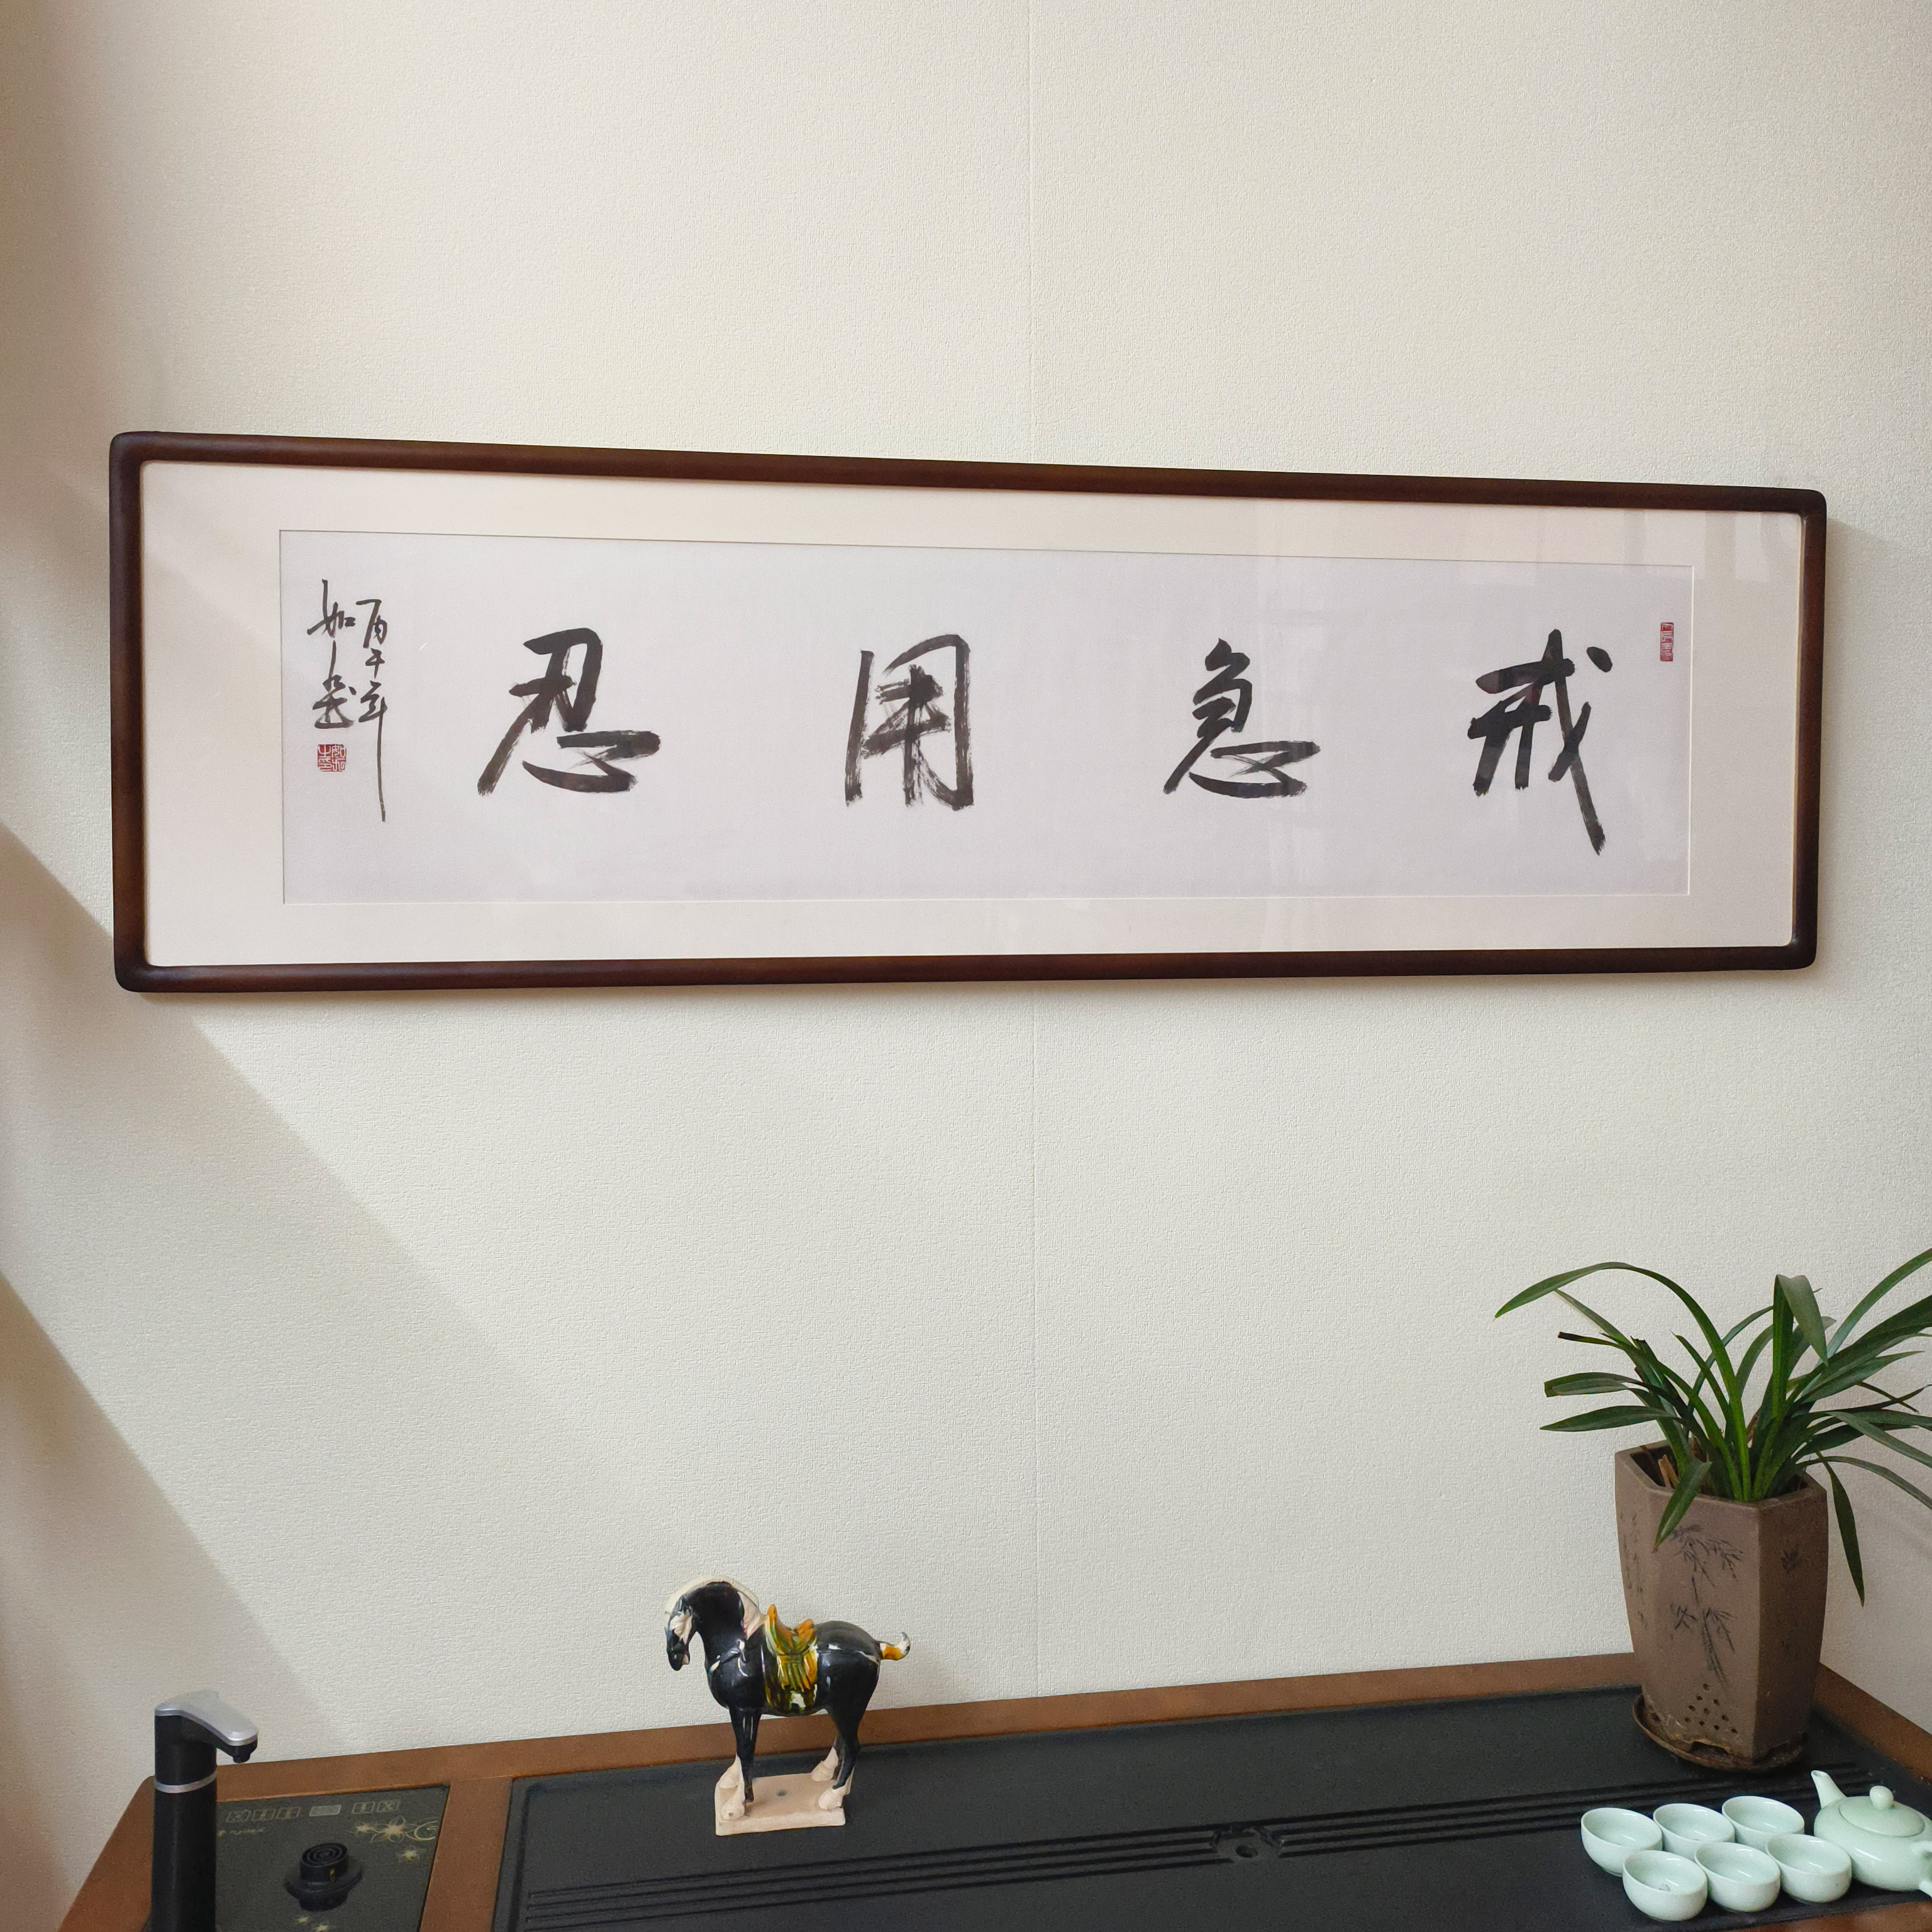 戒急用忍
丙午年
如